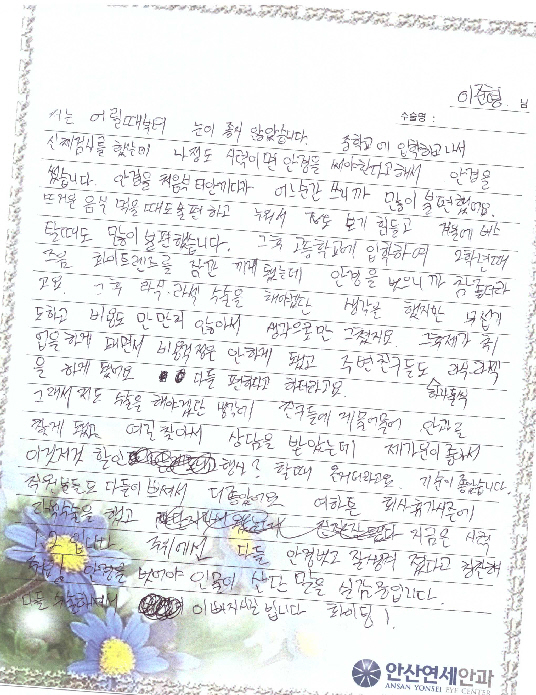 이준형 님
수술명 :
저는 어릴때부터 눈이 좋지 않았습니다. 중학교에 입학하고나서
신체검사를 했는데 나정도 시력이면 안경을 써야한다고해서 안경을
썼습니다. 안경을 처음부터 안끼다가 어느순간 쓰니까 많이 불편했어요.
뜨거운 음식 먹을때도 불편하고 누워서 보기 힘들고 겨울에 버스
탈때도 많이 불편했습니다. 그후 고등학교에 입학하여 2학년때
처음 렌즈를 잠깐 끼게 됐는데 안경을 벗으니까 참 좋더라
고요. 그 후 라식, 라섹 수술을 해야겠단 생각은 했지만 무섭기
도하고 비용도 만만치 않아서 생각으로만 그쳤지요. 그후제가 취
업을하게 되면서 비용걱정은 안하게 됐고 주변친구들도 라식, 라섹
을 하게 됐어요 다들 편하다고 하더라고요.
그래서 저도 수술을 해야겠단 생각에 친구들에 안과를
찾게 됐고 여길 찾아서 상담을 받았는데 제가 좋아서
이것저것 할인 ? 할때 기분이 좋았습니다.
직원분들도 다들 이쁘셔서 더 좋았어요 여하튼 회사휴가시즌에
라섹수술을 했고 지금은 시력
1.2 입니다 주위에서 다들 안경벗고 잘생겨 졌다고 칭찬해
안경을 벗어야 인물이 산단 말을 실감중입니다.
다들 수술하셔서 이뻐지시길 빕니다 화이팅!
안산연세안과
ANSAN YONSEI EYE CENTER